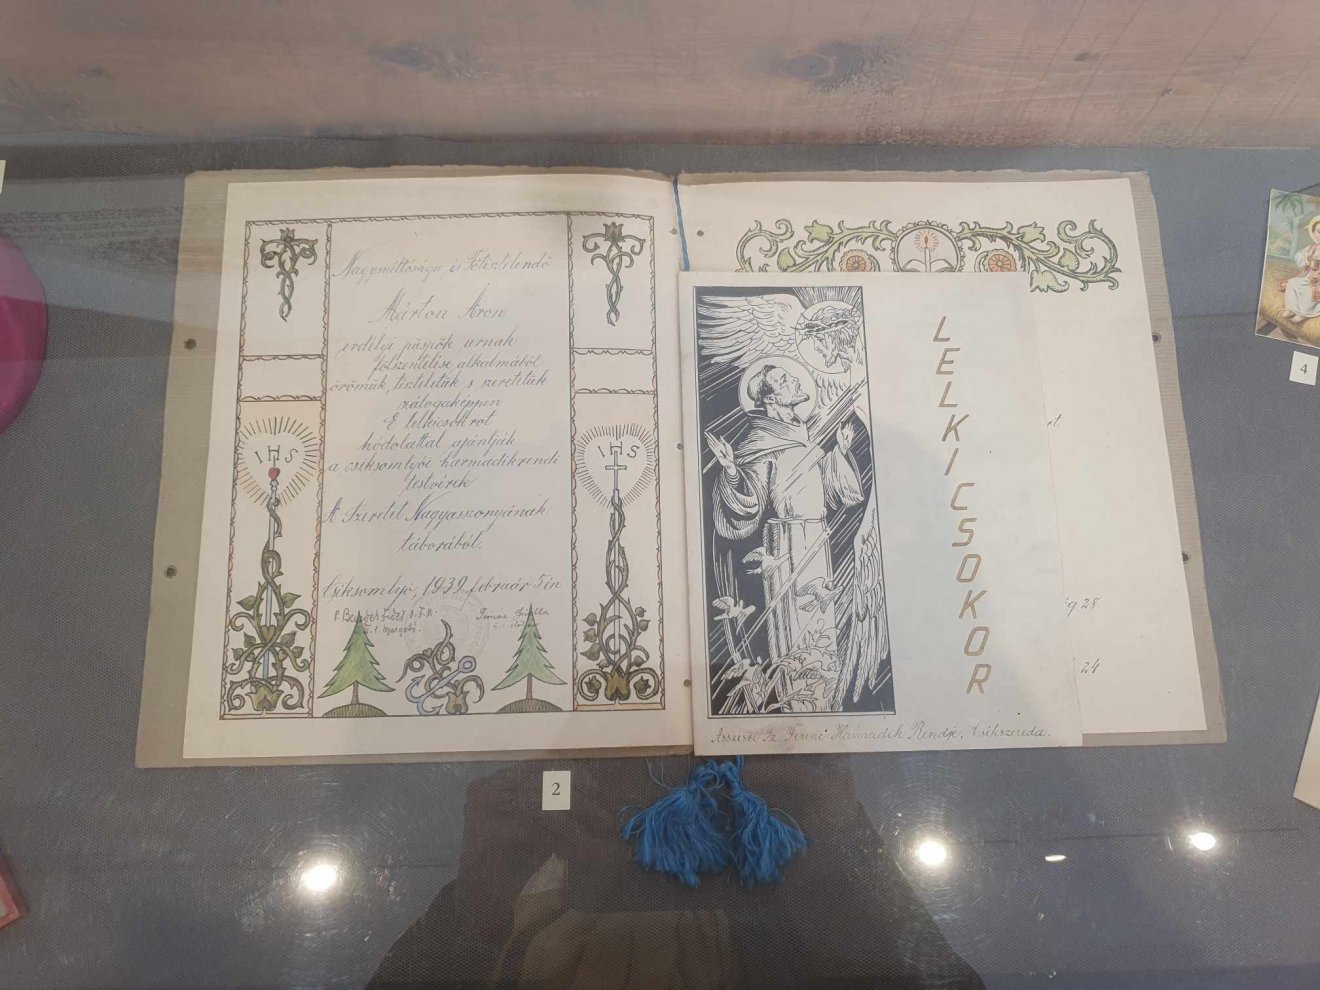 Nagyméltóságu és Főtisztelendő
Márton Áron
erdélyi püspök urnak
fölszentelése alkalmából
örömük, tiszteletük s szeretetük
zálogaképpen
E lelkicsokrot
hódolattal ajánlják
a csiksomlyói harmadikrendi
testvérek
A Szeretet Nagyasszonyának
táborából.
Csiksomlyó, 1939 február 5-én
IHS
IHS
LELKI CSOKOR
Assziszi Sz. Ferenc Harmadik Rendje, Csikszereda.
28
24
2
4